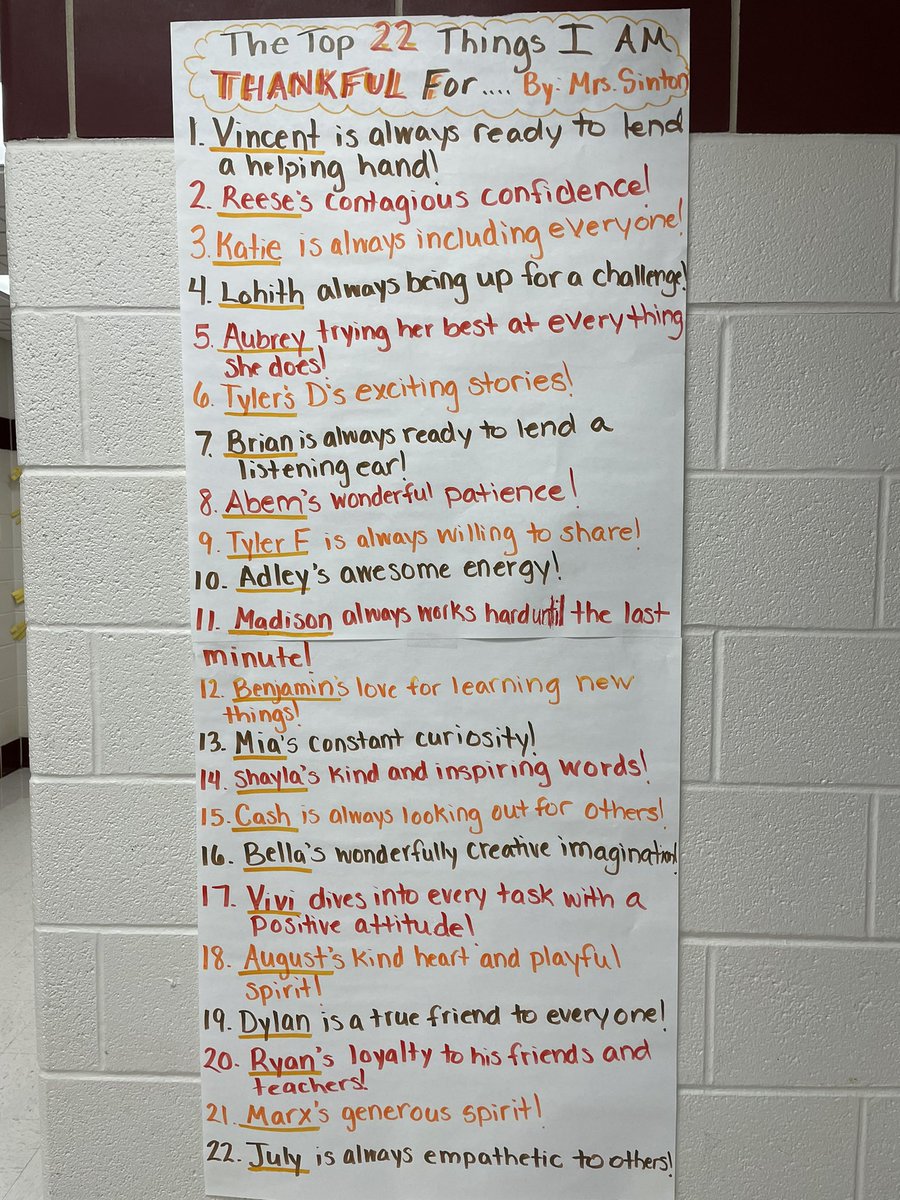 The Top 22 Things I AM
THANKFUL For.... By: Mrs. Sinton
1. Vincent is always ready to lend
a helping hand!
2. Reese's contagious confidence!
3. Katie is always including everyone!
4. Lohith always being up for a challenge!
5. Aubrey trying her best at everything
she does!
6. Tyler's D's exciting stories!
7. Brian is always ready to lend a
listening ear!
8. Abem's wonderful patience!
9. Tyler F is always willing to share!
10. Adley's awesome energy!
11. Madison always works hard until the last
minute!
12. Benjamin's love for learning new
things!
13. Mia's constant curiosity!
14. Shayla's kind and inspiring words!
15. Cash is always looking out for others!
16. Bella's wonderfully creative imagination!
17. Vivi dives into every task with a
positive attitude!
18. August's kind heart and playful
spirit!
19. Dylan is a true friend to everyone!
20. Ryan's loyalty to his friends and
teachers!
21. Marx's generous spirit!
22. July is always empathetic to others!